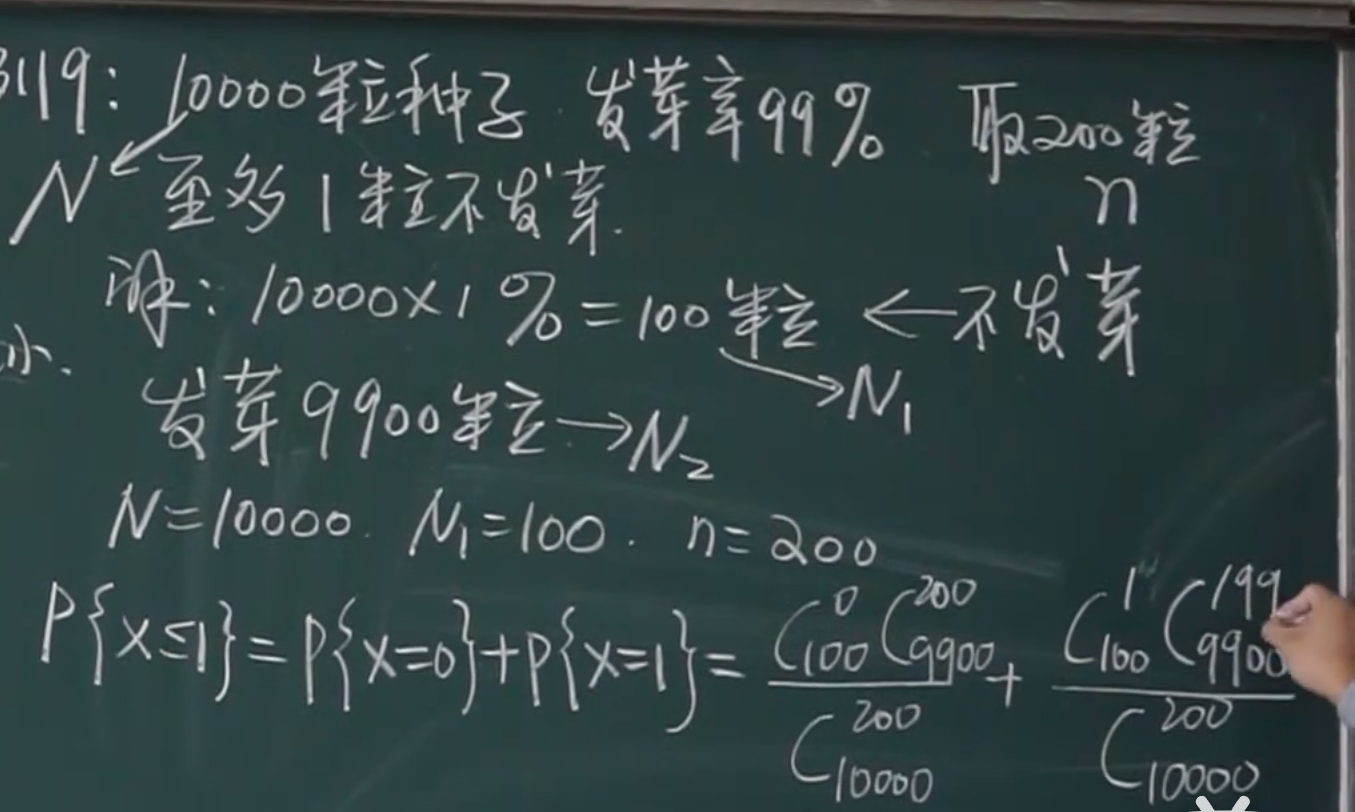 3119: 10000粒种子 发芽率99% 取200粒
N 至多1粒不发芽. n
解: 10000×1%=100粒 ← 不发芽
小.
→N₁
发芽9900粒→N₂
N=10000. N₁=100. n=200
P{X≤1}=P{X=0}+P{X=1}= C⁰₁₀₀C²⁰⁰₉₉₀₀/C²⁰⁰₁₀₀₀₀ + C¹₁₀₀C¹⁹⁹₉₉₀₀/C²⁰⁰₁₀₀₀₀